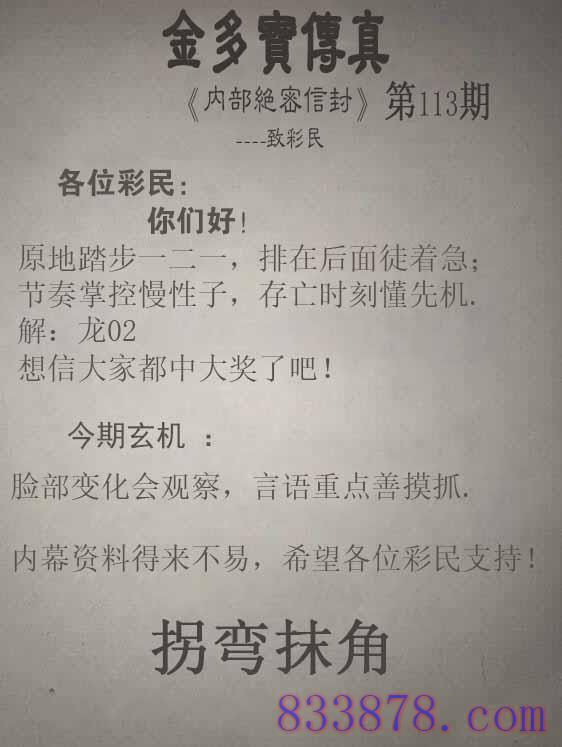 金多寶傳真
《内部絕密信封》第113期
----致彩民
各位彩民:
你们好!
原地踏步一二一，排在后面徒着急;
节奏掌控慢性子，存亡时刻懂先机.
解：龙02
想信大家都中大奖了吧!
今期玄机 :
脸部变化会观察，言语重点善摸抓.
内幕资料得来不易，希望各位彩民支持!
拐弯抹角
833878.com